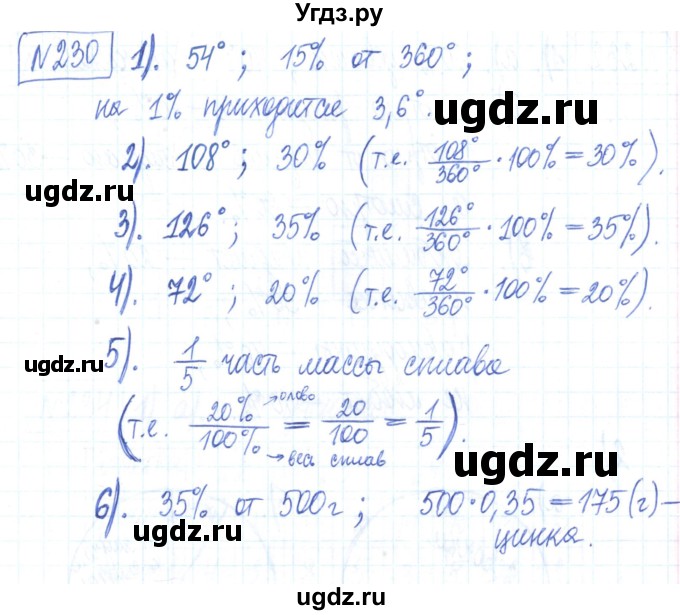 Угдз.ру
№230 1). 54°; 15% от 360°;
на 1% приходится 3,6°.
ugdz.ru
2). 108°; 30% (т.е. 108°/360° · 100% = 30%).
ugdz.ru
3). 126°; 35% (т.е. 126°/360° · 100% = 35%).
4). 72°; 20% (т.е. 72°/360° · 100% = 20%).
ugdz.ru
ugdz.ru
5). 1/5 часть массы сплава
(т.е. 20%/100% = 20/100 = 1/5).
→ олово
→ весь сплав
ugdz.ru
6). 35% от 500г; 500·0,35 = 175 (г) –
цинка.
ugdz.ru